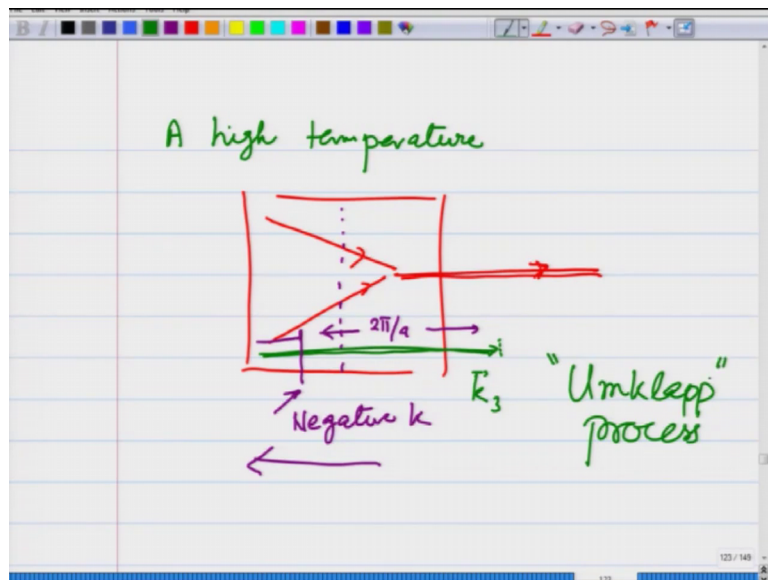 A high temperature
2π/a
k⃗3
"Umklapp"
process
Negative k
123 / 149